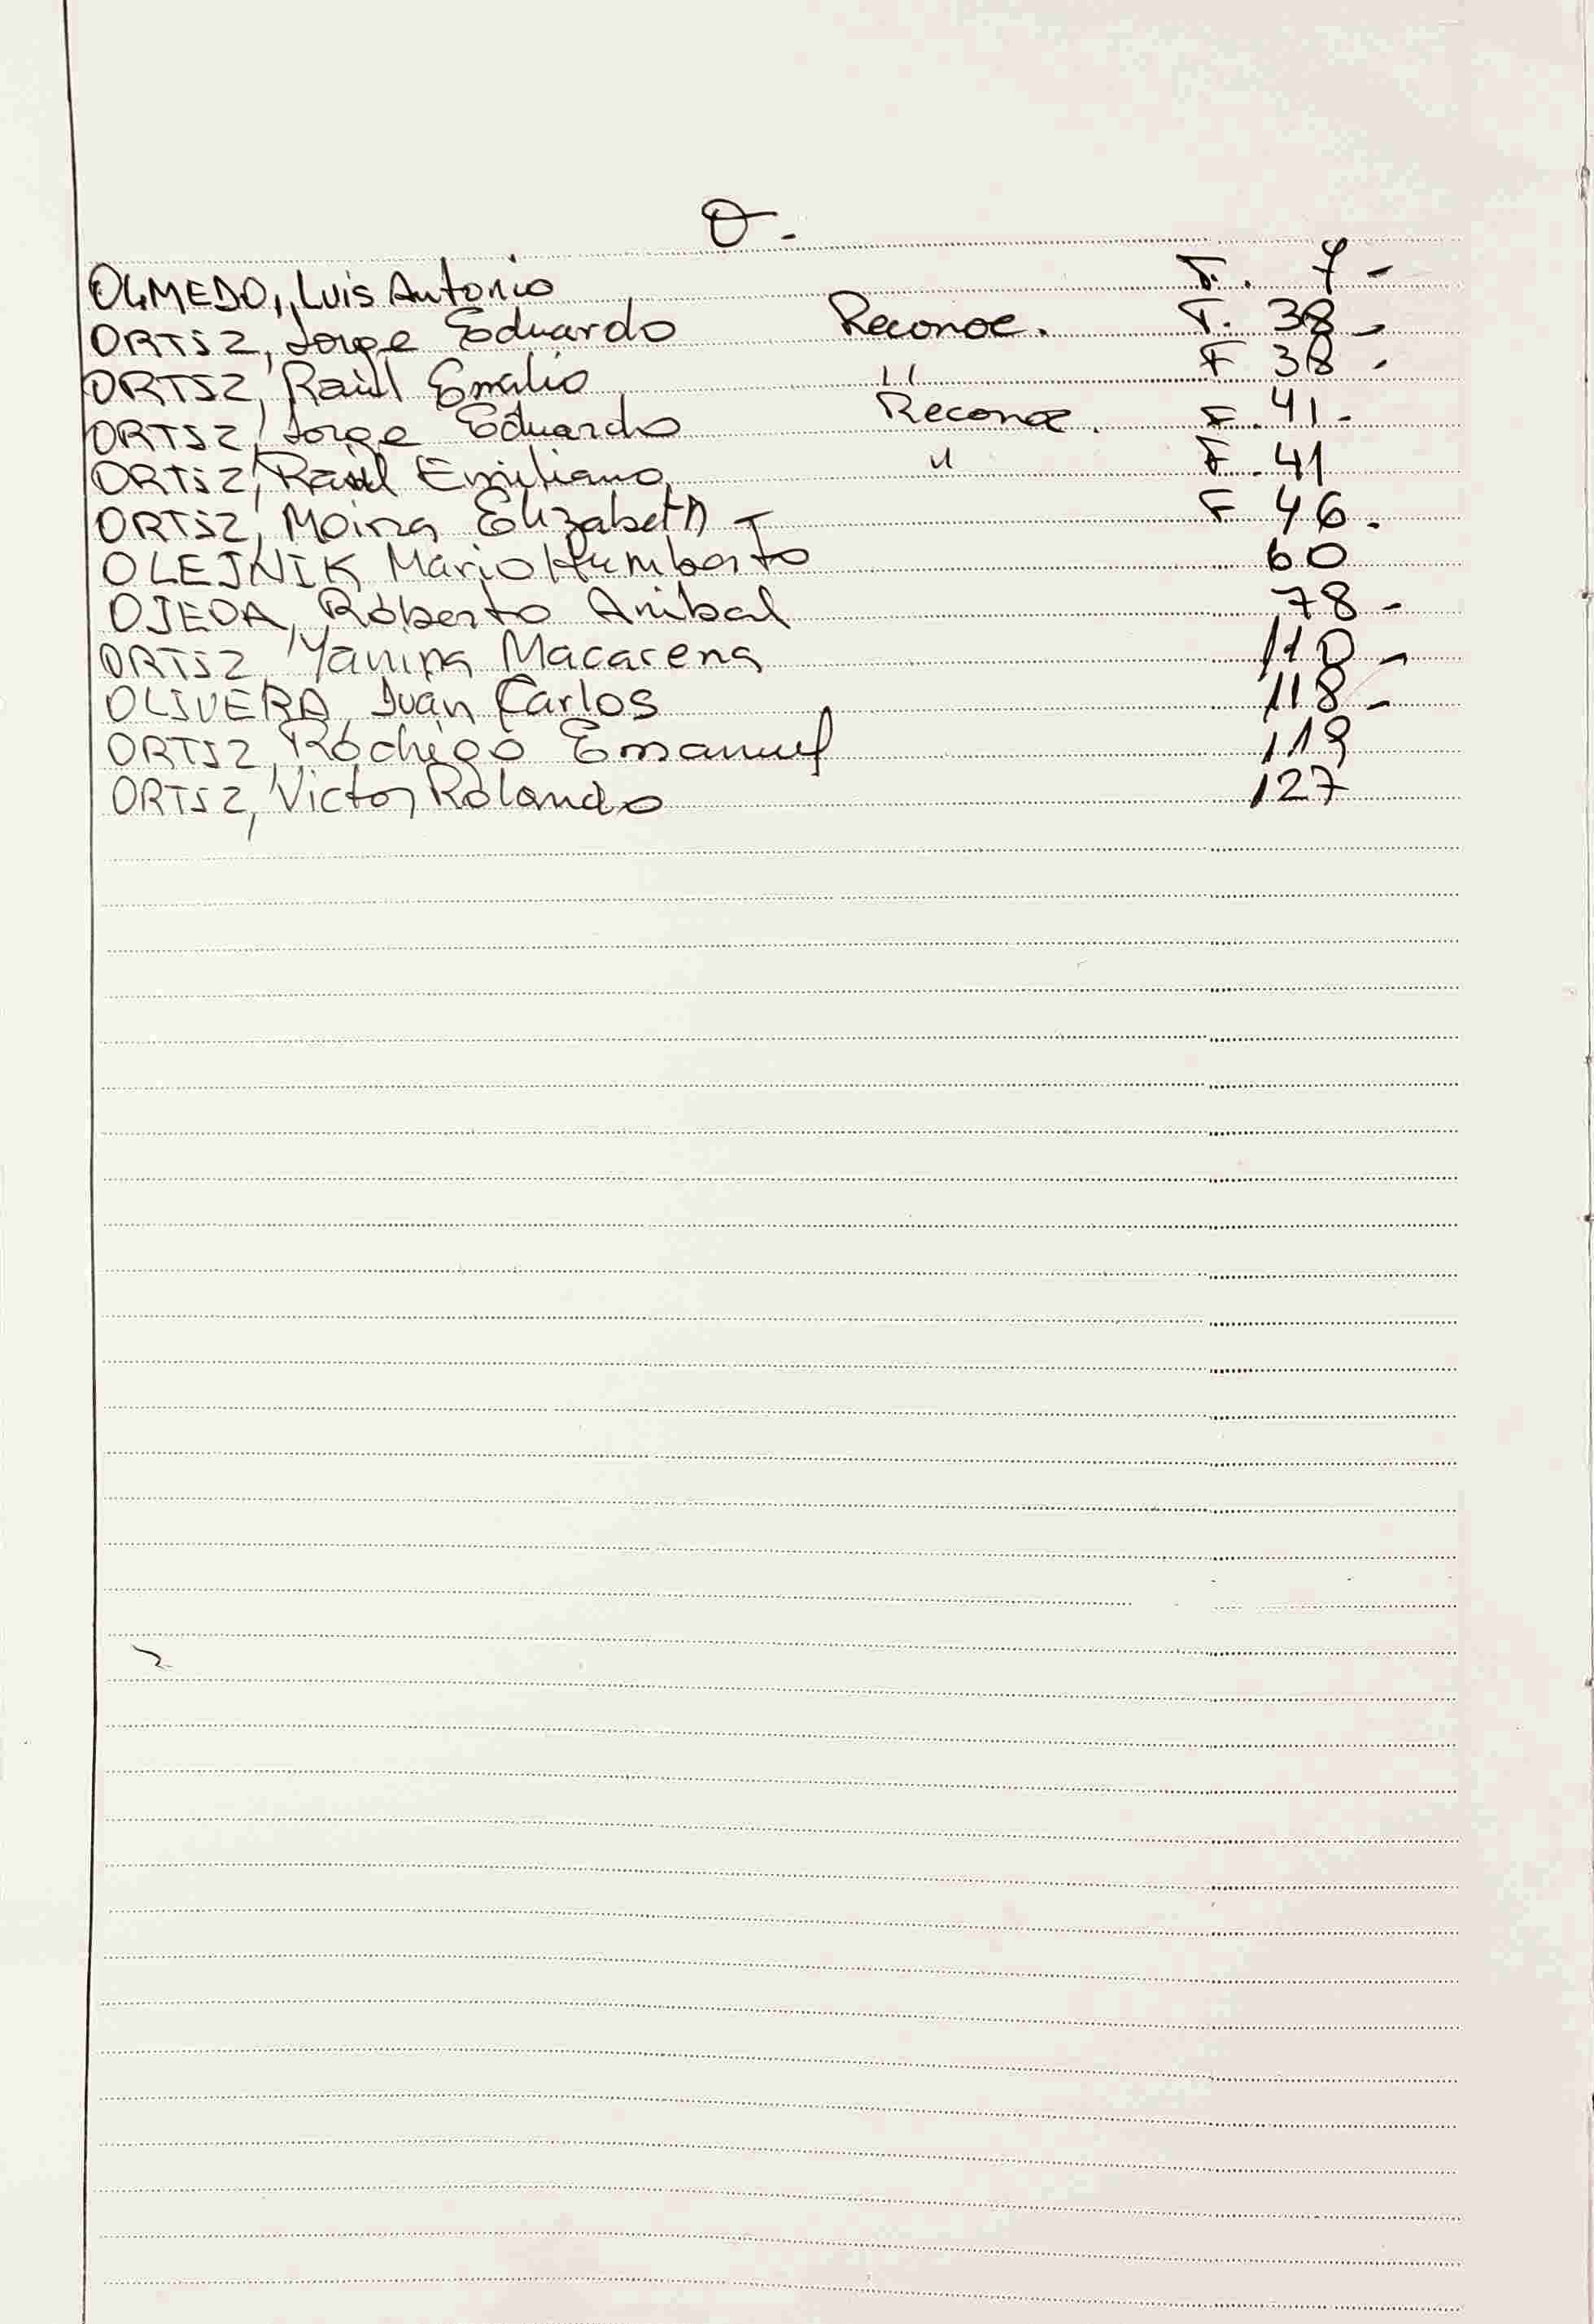 O-
OLMEDO, Luis Antonio F. 7-
ORTiZ, Jorge Eduardo Reconoc. F. 38-
ORTIZ, Raúl Emilio " F 38-
ORTIZ, Jorge Eduardo Reconoc. F. 41-
ORTiZ, Raúl Emiliano " F. 41
ORTiZ, Moira Elizabeth - F 46.
OLEJNIK Mario Humberto 60
OJEDA, Roberto Anibal 78-
ORTiZ, Yanina Macarena 110-
OLIVERA, Juan Carlos 118-
ORTIZ, Rodrigo Emanuel 119
ORTIZ, Victor Rolando 127